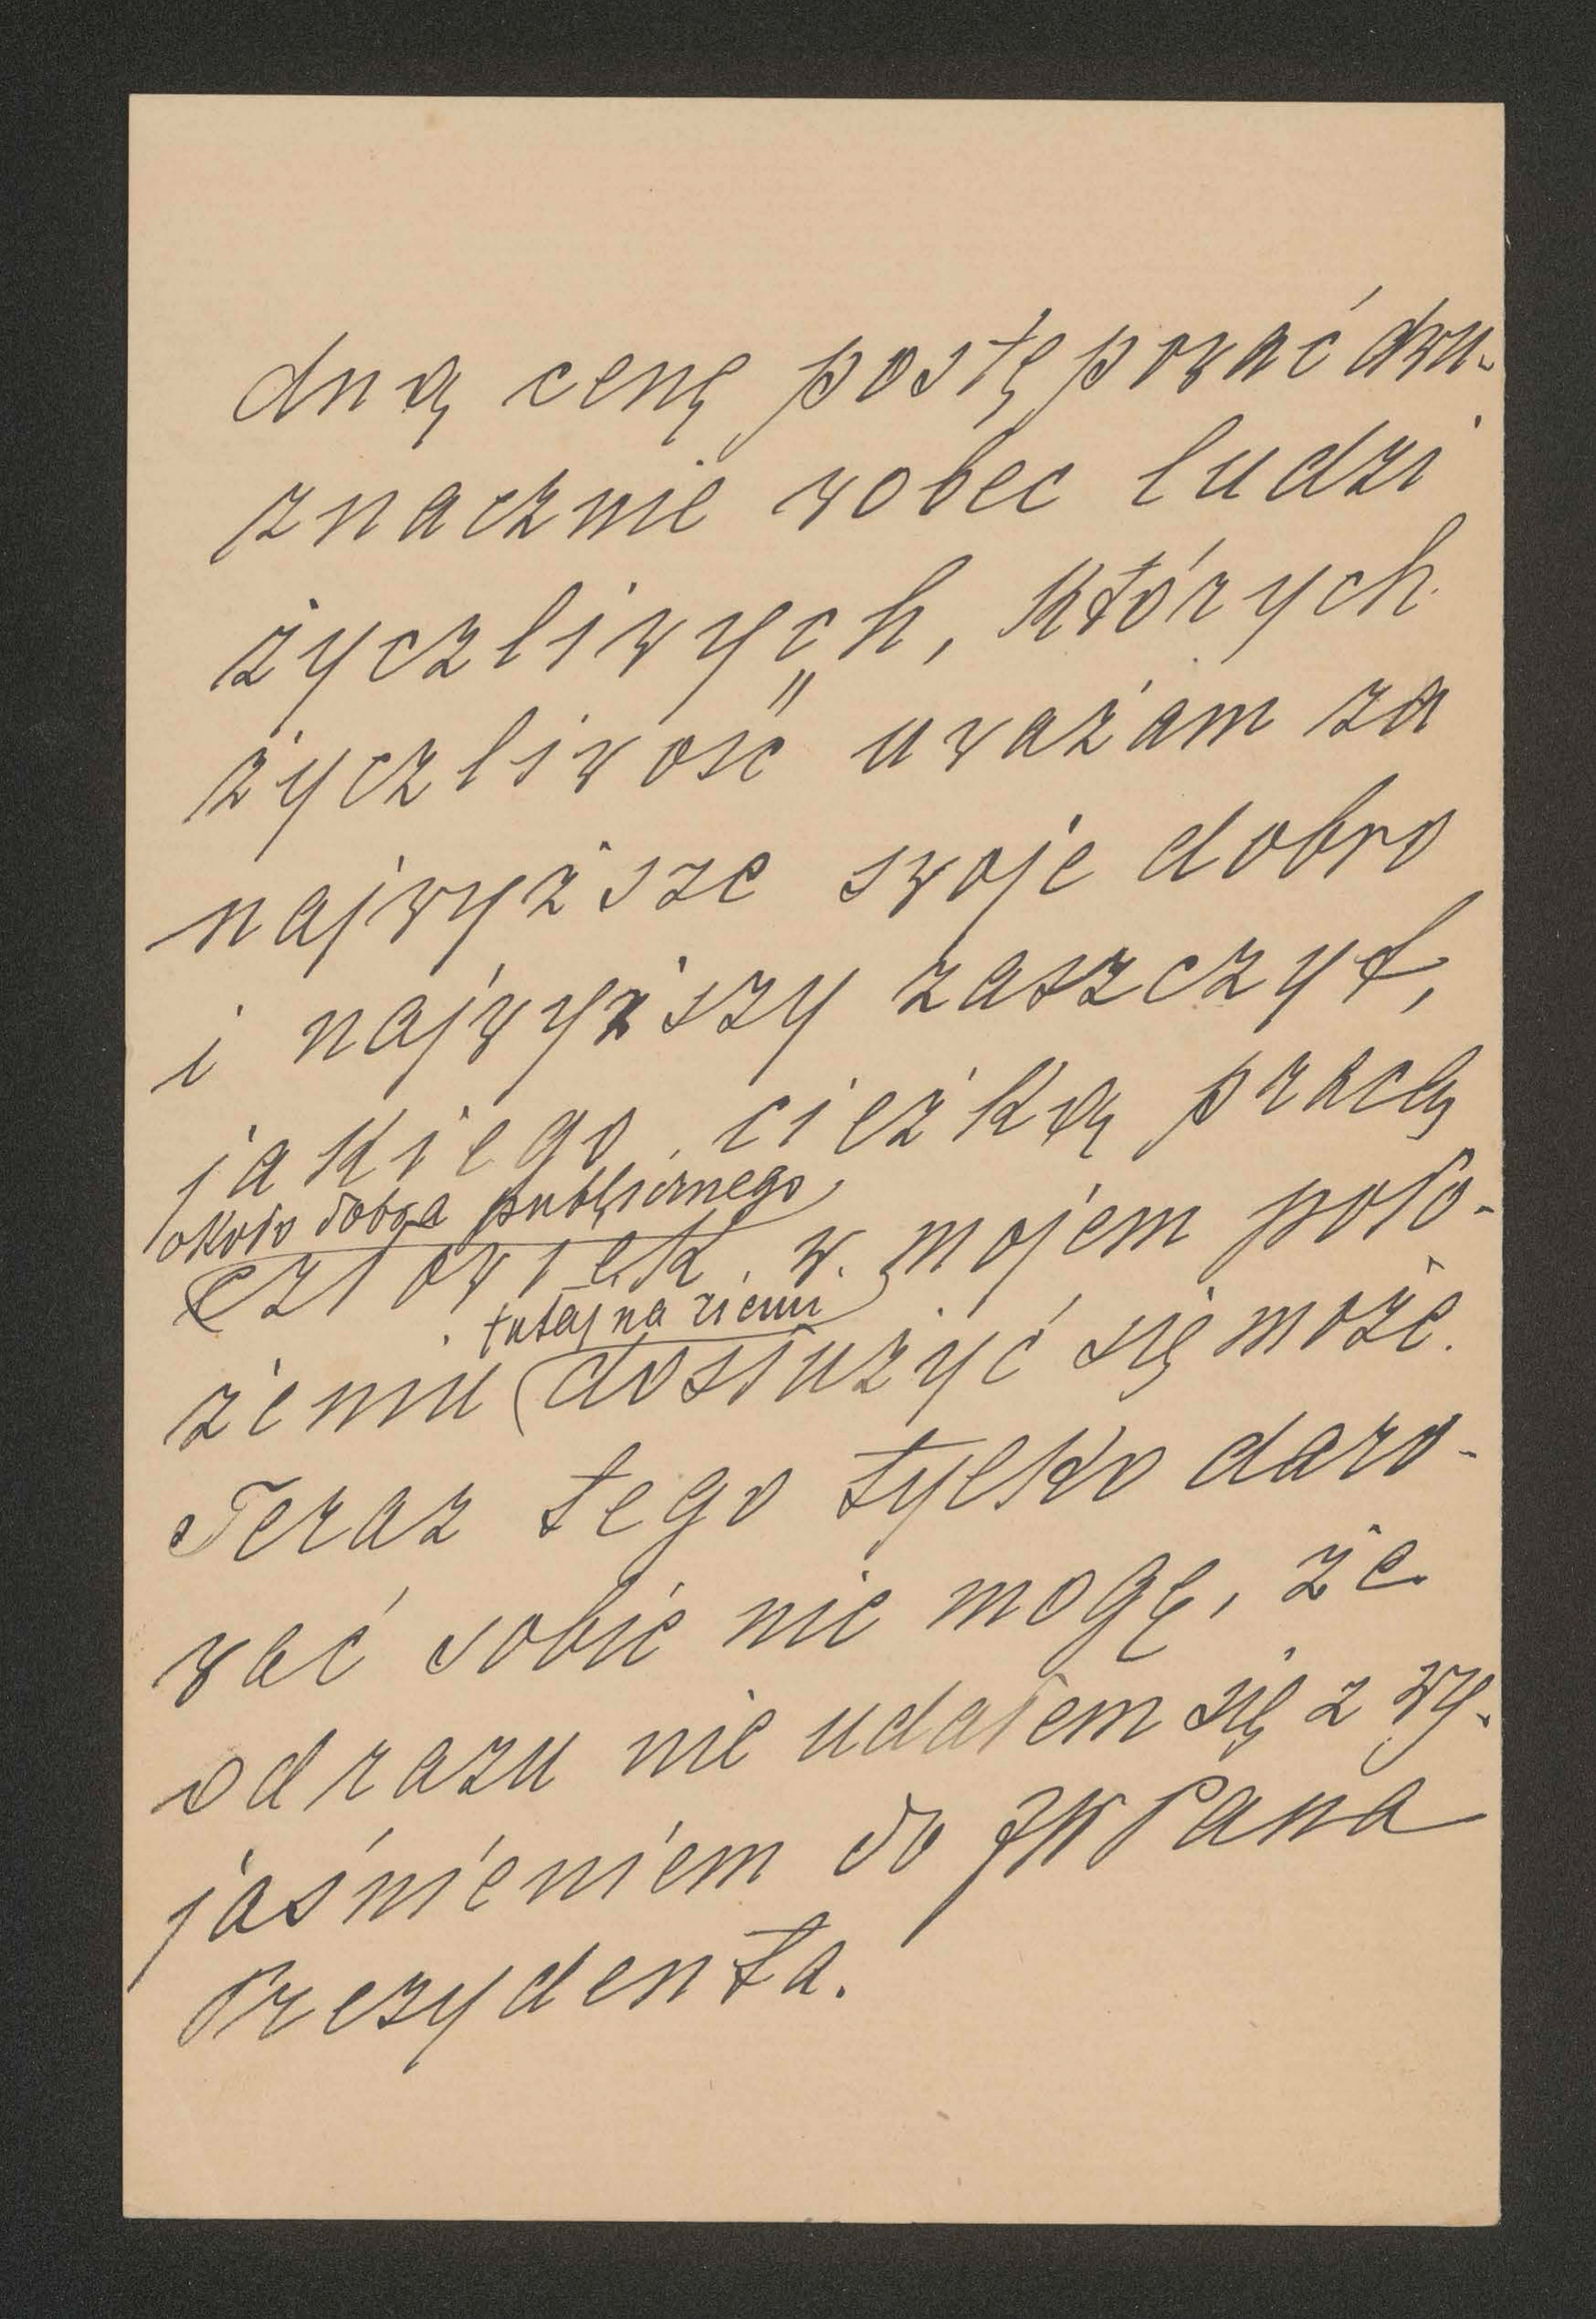 dną cenę postępować dwu-
znacznie wobec ludzi
życzliwych, których
życzliwość uważam za
najwyższe swoje dobro
i najwyższy zaszczyt,
jakiego ciężką pracą
około dobra publicznego,
człowiek w mojem poło-
tutaj na ziemi
żeniu dosłużyć się może.
Teraz tego tylko daro-
wać sobie nie mogę, że
odrazu nie udałem się z wy-
jaśnieniem do JWPana
Prezydenta.